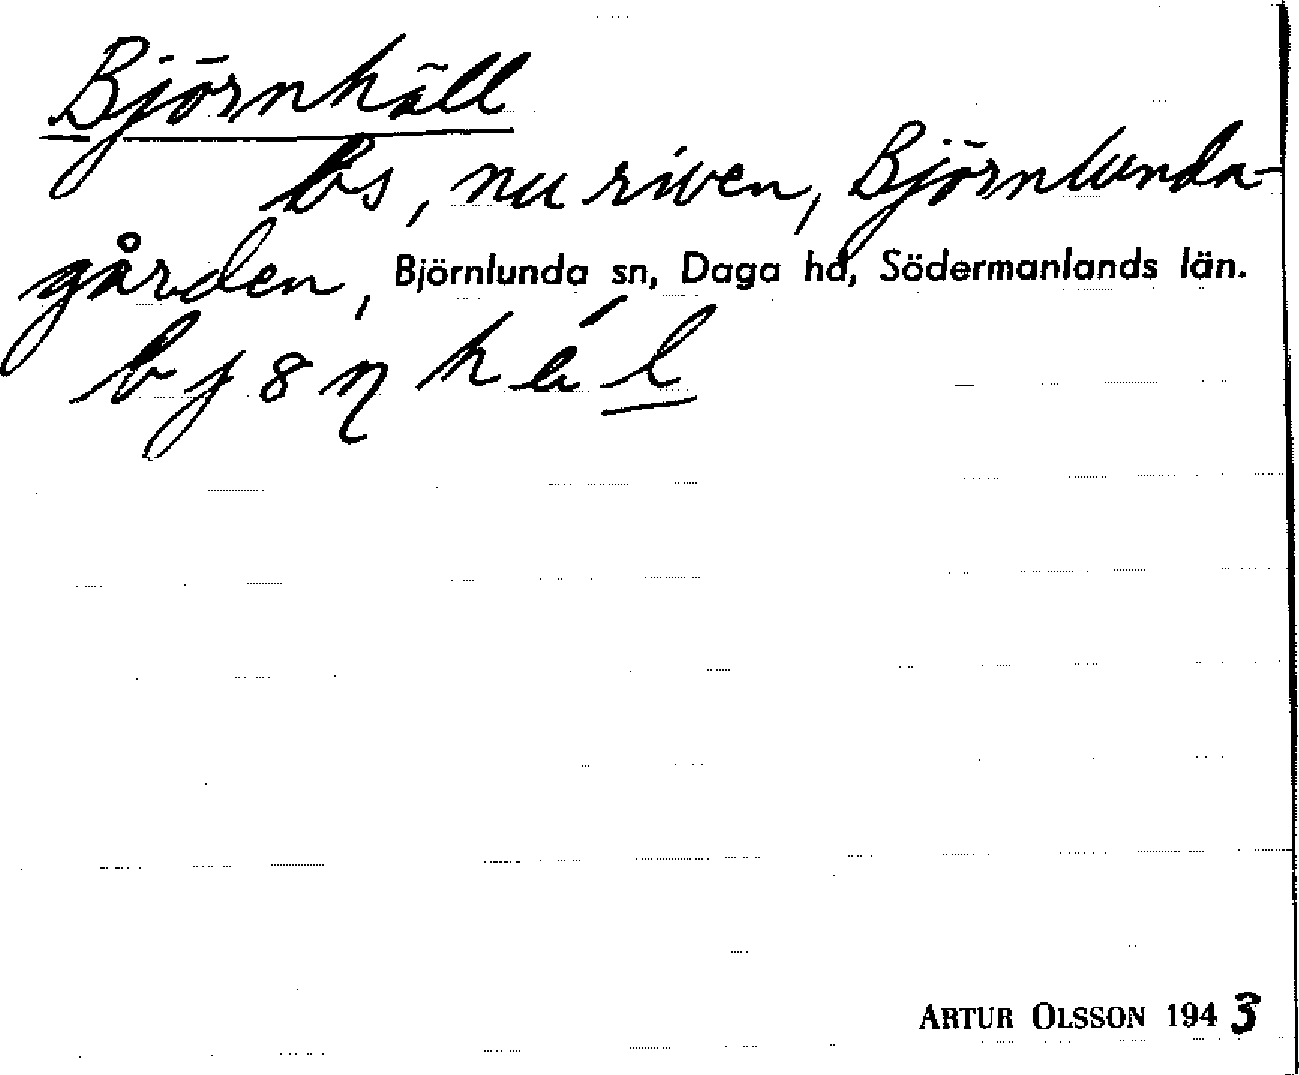 Björnhäll
bs, nu riven, Björnlunda-
gården, Björnlunda sn, Daga hd, Södermanlands län.
bj8ɳ hä́l
ARTUR OLSSON 1943